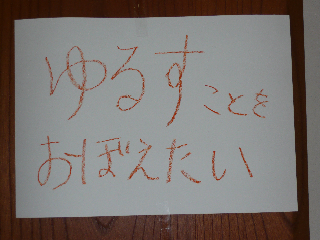 ゆるすことを
おぼえたい